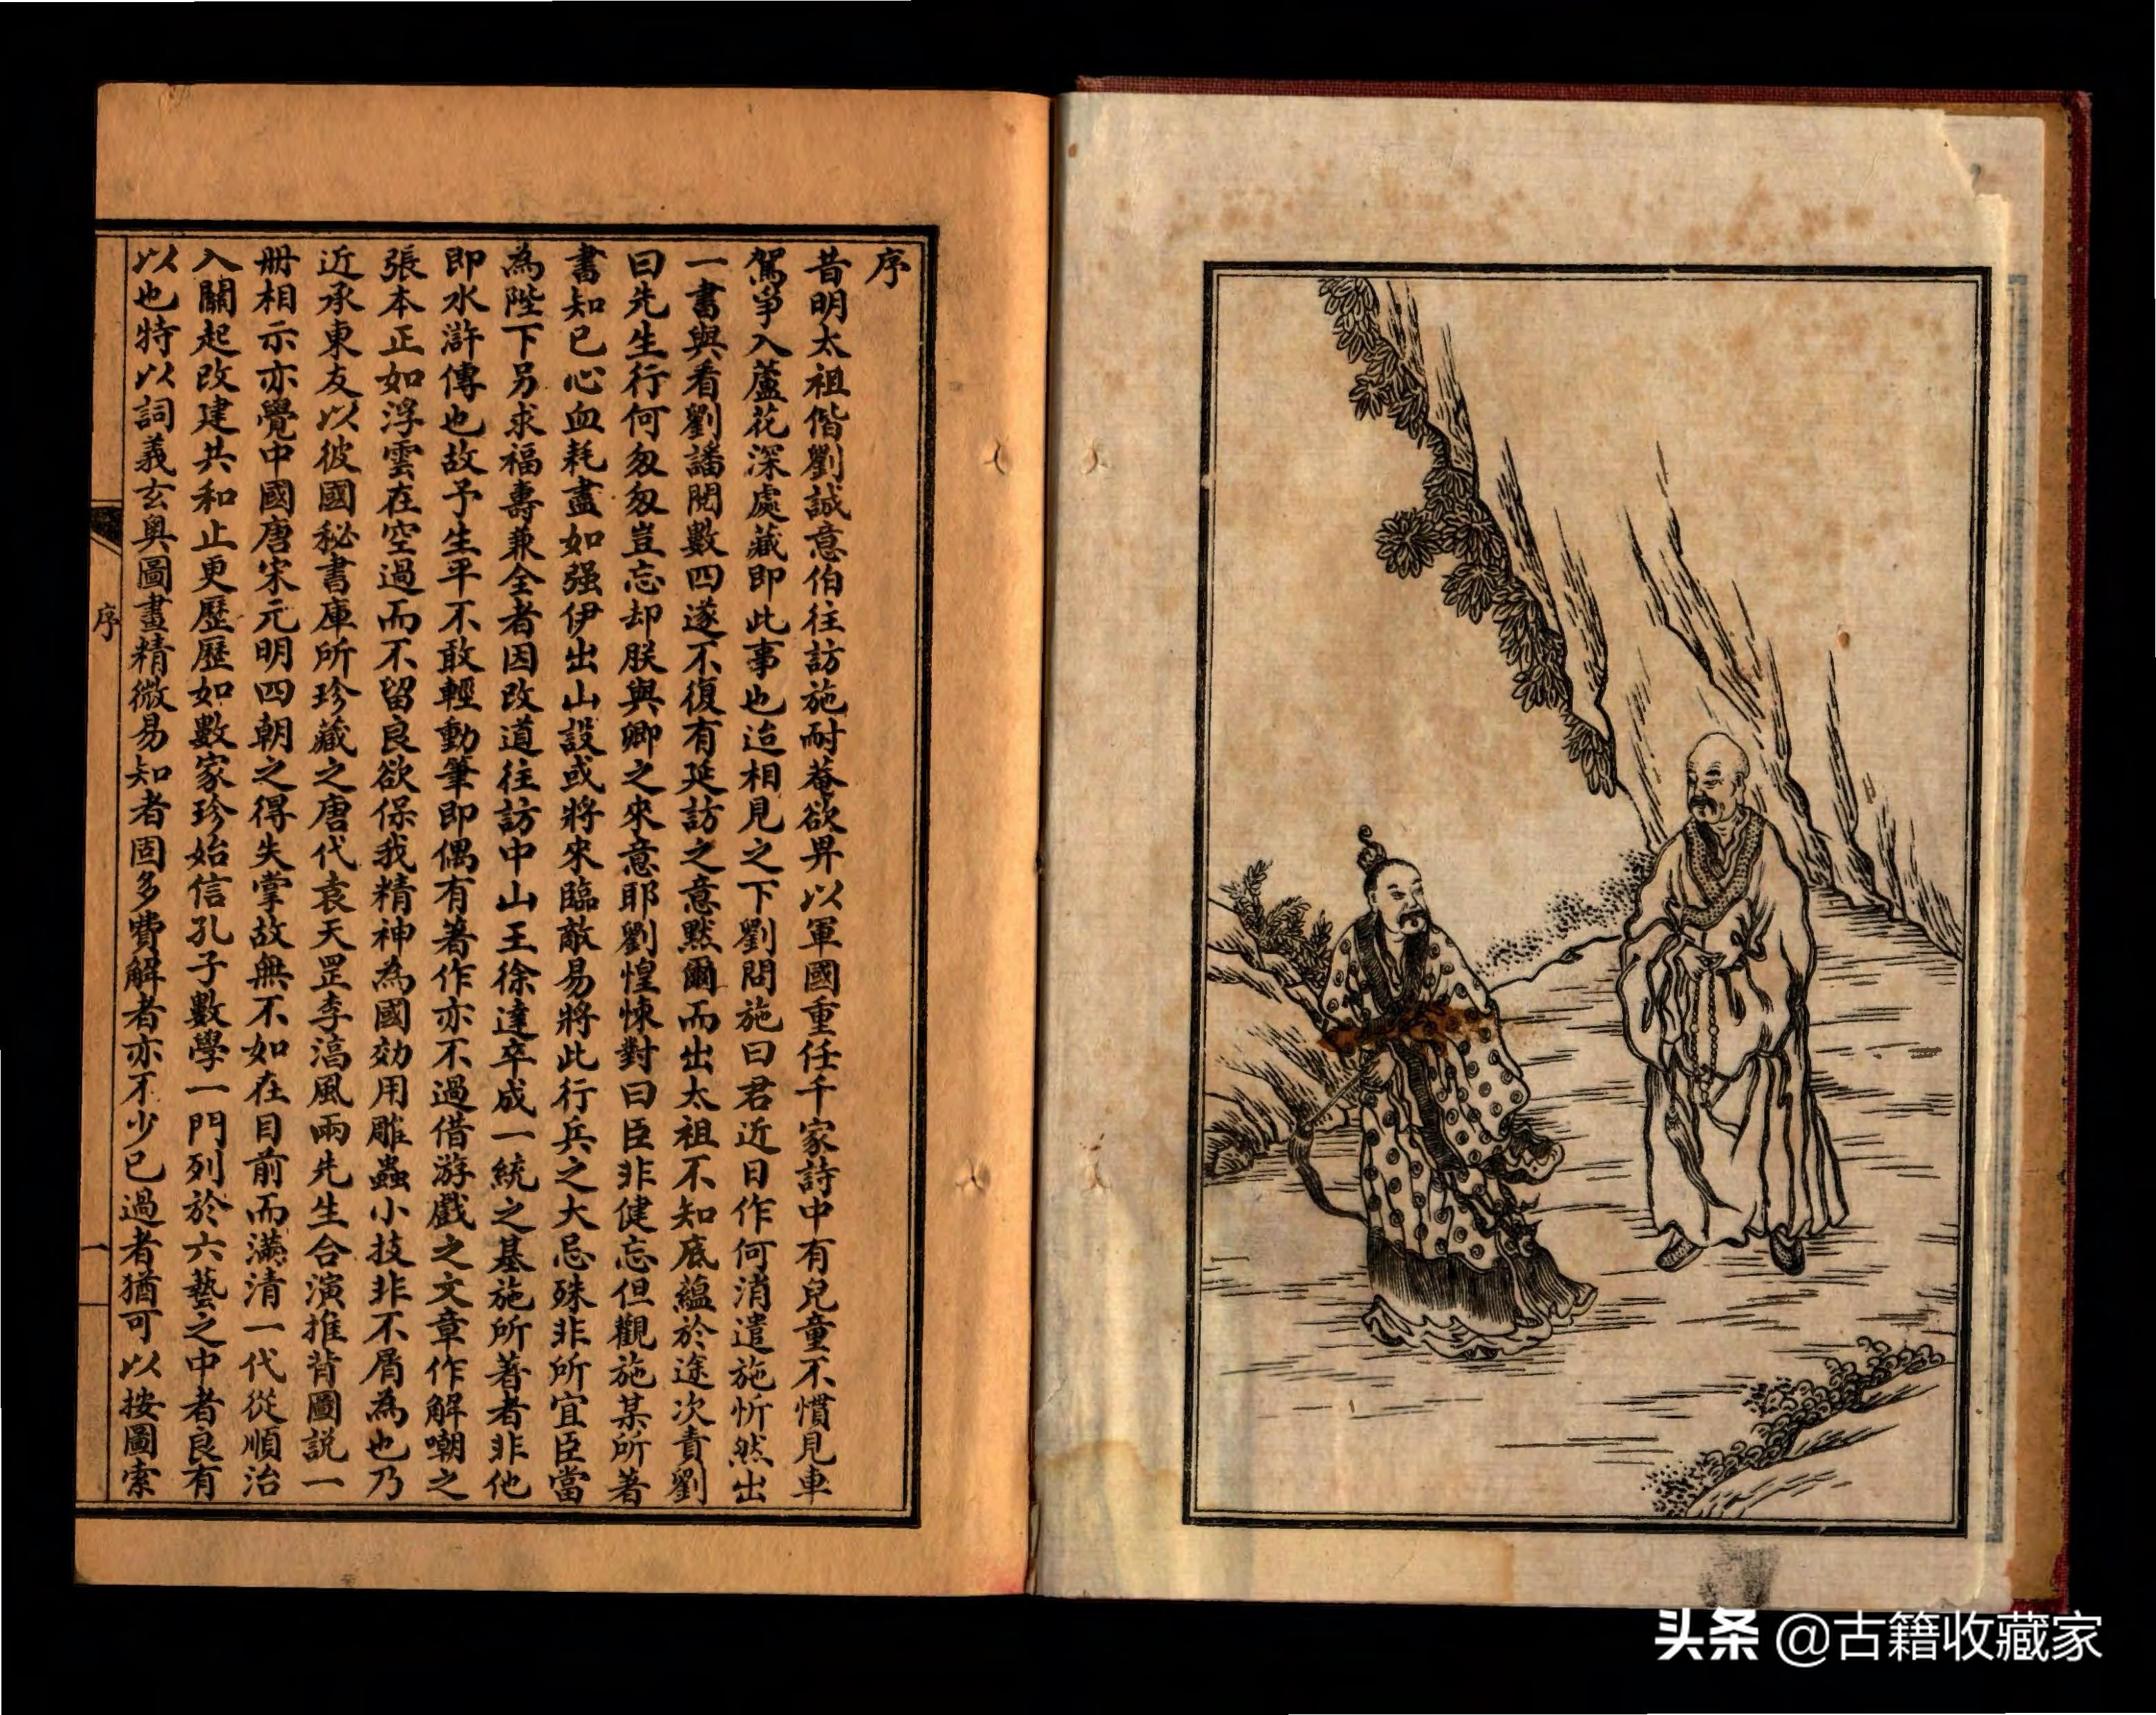 序
昔明太祖偕劉誠意伯往訪施耐菴欲畀以軍國重任千家詩中有兒童不慣見車
駕爭入蘆花深處藏即此事也迨相見之下劉問施曰君近日作何消遣施忻然出
一書與看劉譒閱數四遂不復有延訪之意黙爾而出太祖不知底蘊於途次責劉
曰先生行何匆匆豈忘却朕與卿之來意耶劉惶悚對曰臣非健忘但觀施某所著
書知已心血耗盡如强伊出山設或將來臨敵易將此行兵之大忌殊非所宜臣當
為陛下另求福壽兼全者因改道往訪中山王徐達卒成一統之基施所著者非他
即水滸傳也故予生平不敢輕動筆即偶有著作亦不過借游戲之文章作解嘲之
張本正如浮雲在空過而不留良欲保我精神為國効用雕蟲小技非不屑為也乃
近承東友以彼國秘書庫所珍藏之唐代袁天罡李淳風兩先生合演推背圖說一
册相示亦覺中國唐宋元明四朝之得失掌故無不如在目前而滿清一代從順治
入關起改建共和止更歷歷如數家珍始信孔子數學一門列於六藝之中者良有
以也特以詞義玄奧圖畫精微易知者固多費解者亦不少已過者猶可以按圖索
序
一
头条 @古籍收藏家